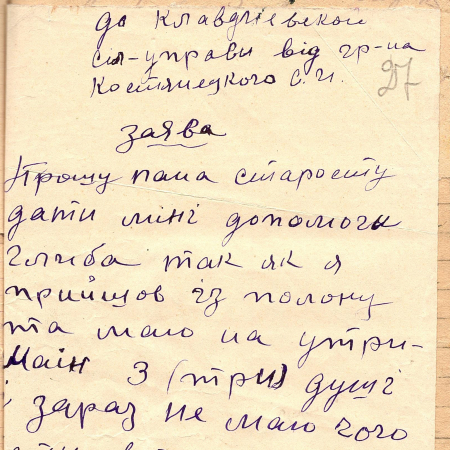 до Клавдіевской
сіл-управи від гр-на
Костянецкого С. И.
27
заява
Прошу пана старосту
дати міні допомоги
хлиба так як я
прийшов із полону
та маю на утри-
маін 3 (три) душі
і зараз не маю чого